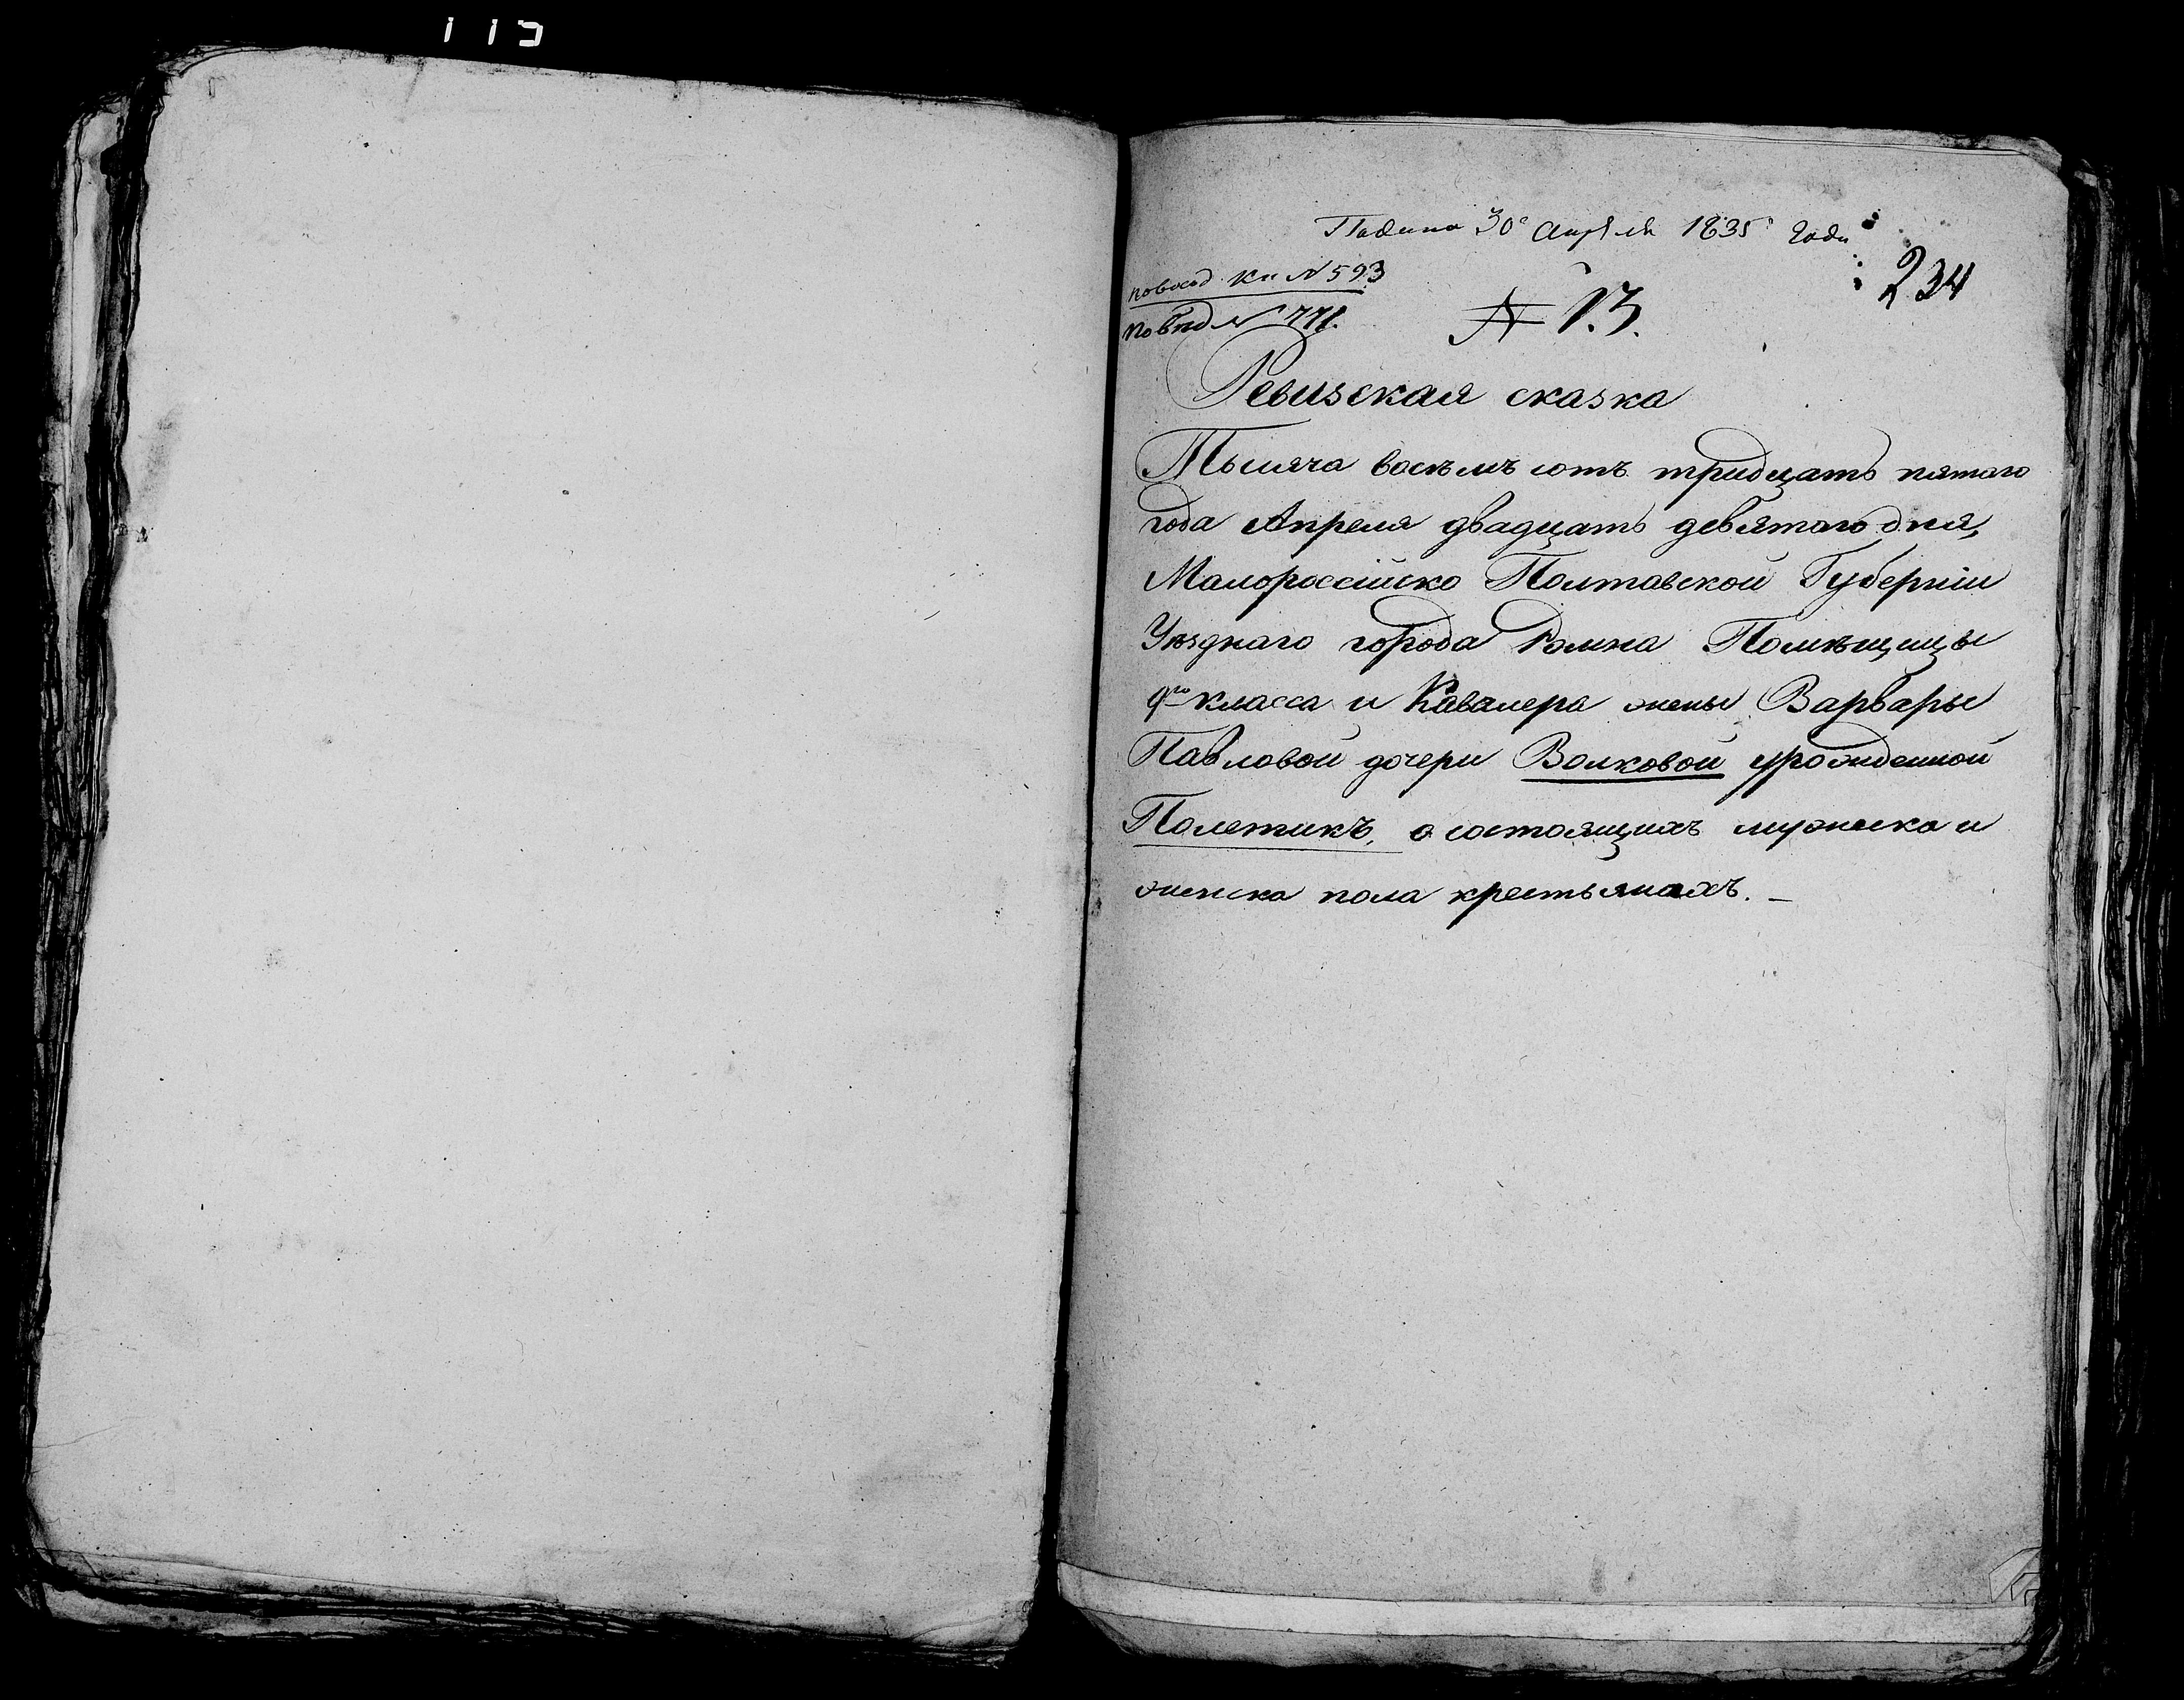 115
Подана 30го Апреля 1835го года
234
по вход. Кн. № 593
№ 13.
Ревизская сказка
Тысяча восемъ сотъ тридцать пятаго
года Апреля двадцать девятаго дня,
Малороссійско Полтавской Губерніи
Уѣзднаго города Ромна Помѣщицы
9го класса и Кавалера жены Варвары
Павловой дочери Волковой урожденной
Полетикъ, о состоящихъ мужеска и
женска пола крестьянахъ. —